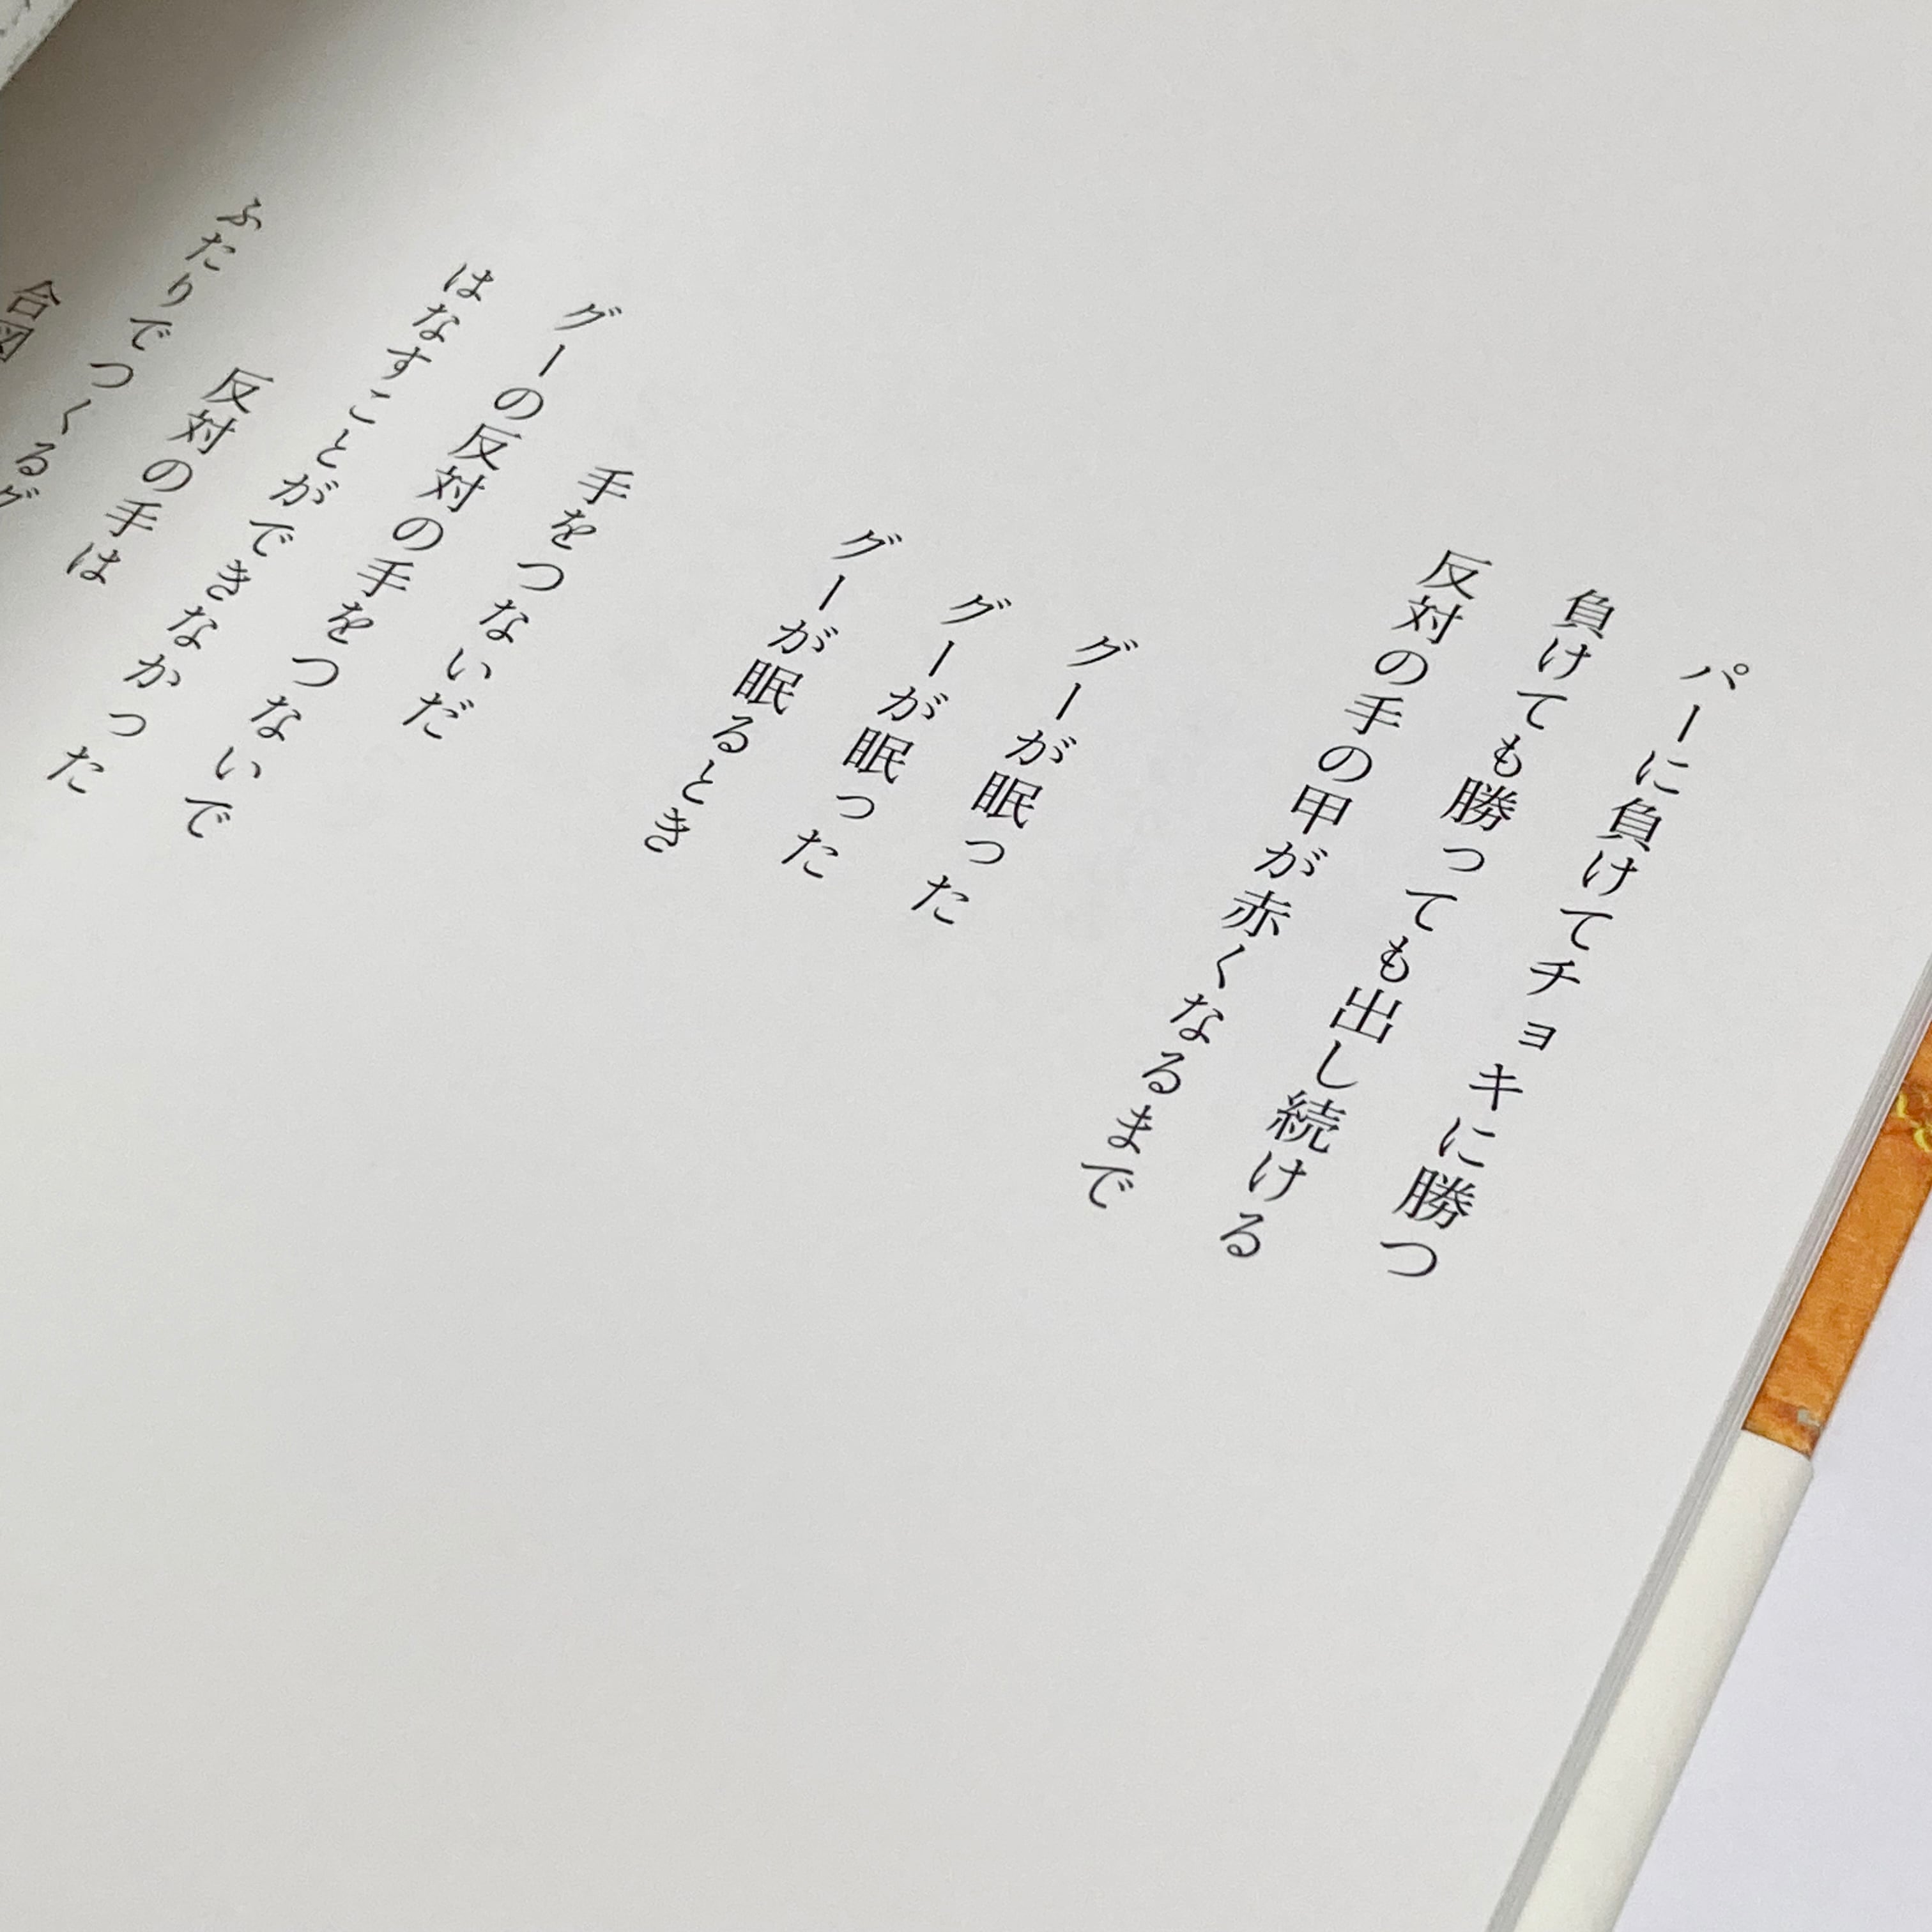 パーに負けてチョキに勝つ
負けても勝っても出し続ける
反対の手の甲が赤くなるまで
グーが眠った
グーが眠った
グーが眠るとき
手をつないだ
グーの反対の手をつないで
はなすことができなかった
反対の手は
ふたりでつくるグ
合図